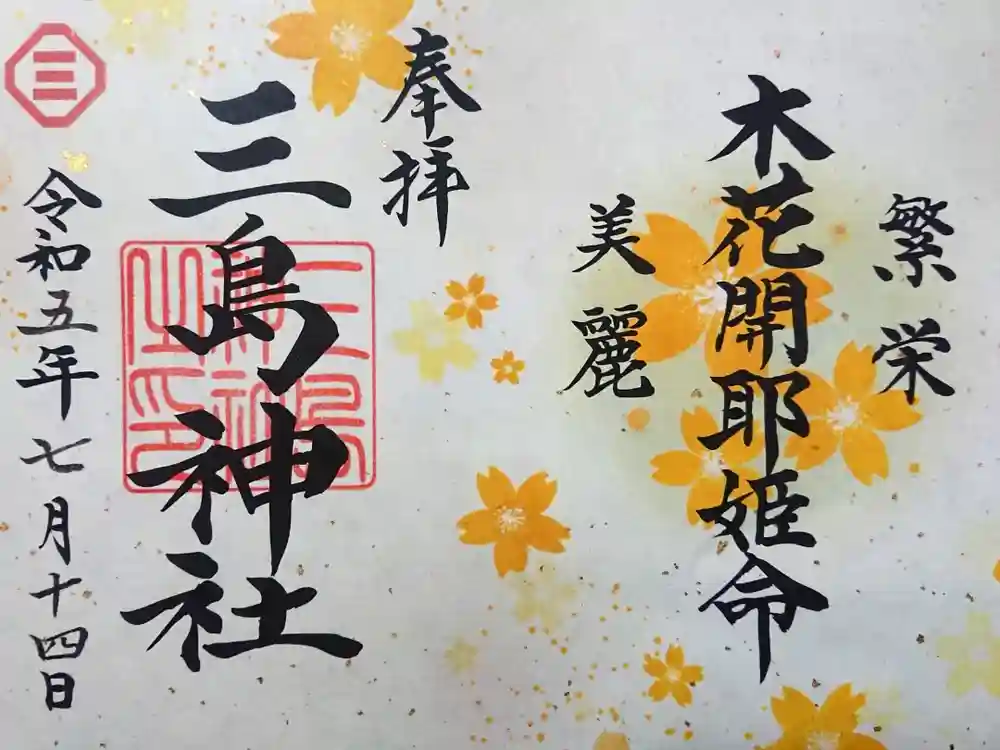 繁栄
木花開耶姫命
美麗
奉拝
三島神社
令和五年七月十四日
三